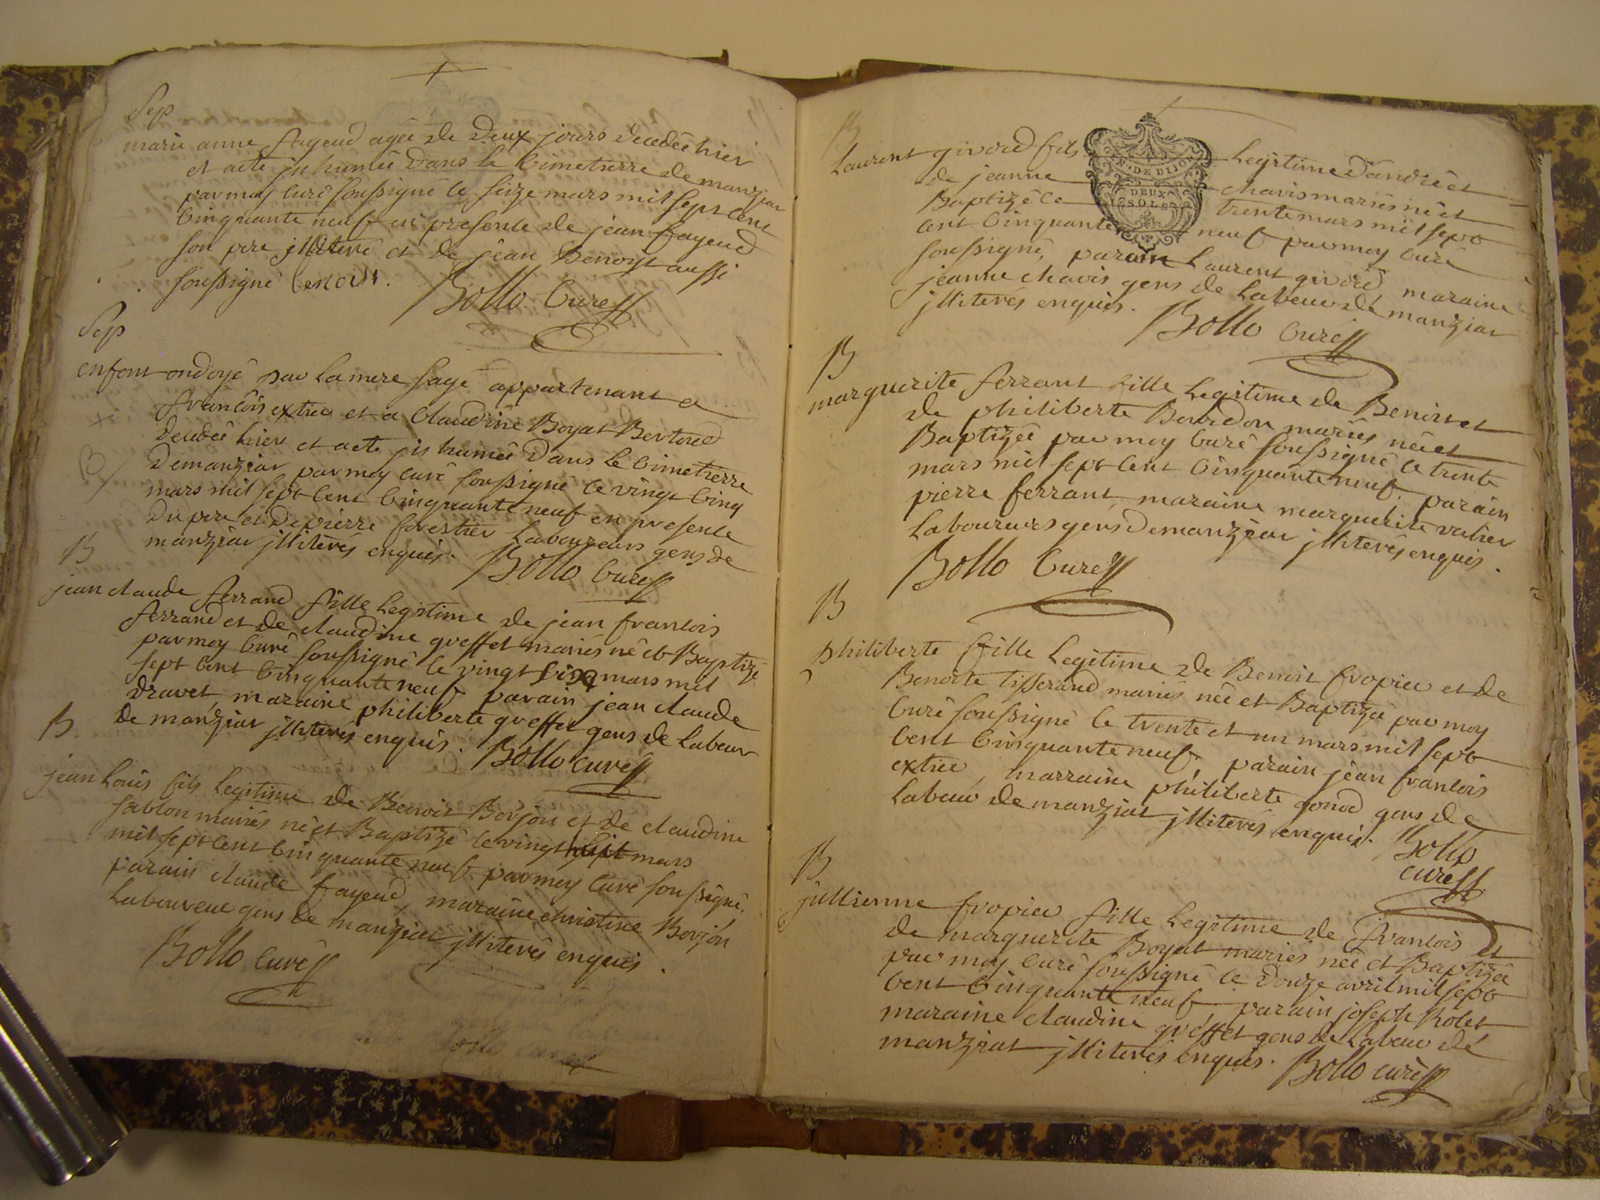 Sep
marie anne fayeud agée de deux jours decedée hier
et acté inhumée dans le Cimetierre de manziat
par moy Curé soussigné le seize mars mil sept Cent
Cinquante neuf en presence de jean fayeud
son pere illiteré et de jean Benoist aussi
soussigné
Bollo Curé
Sep
enfant ondoyé par la mere sage appartenant a
francois extrier et a Claudine Boyat Bertoud
decedée hier et acté inhumée dans le Cimetierre
de manziat par moy Curé soussigné le vingt Cinq
mars mil sept Cent Cinquante neuf en presence
du pere et de pierre forestier Laboureurs gens de
manziat illiterés enquis.
Bollo Curé
B
jean claude ferrand fille legitime de jean francois
ferrand et de claudine greffet mariés né et Baptizé
par moy Curé soussigné le vingt six mars mil
sept Cent Cinquante neuf parain jean claude
dravet maraine philiberte greffet gens de labeur
de manziat illiterés enquis.
Bollo curé
B
jean Louis fils legitime de Benoit Borjon et de claudine
sablon mariés né et Baptizé le vingt sept mars
mil sept Cent Cinquante neuf par moy Curé soussigné.
parain claude fayeud, maraine christine Borjon
Laboureur gens de manziat illiterés enquis.
Bollo Curé
B
Laurent givord fils legitime d'andré et
de jeanne chavis mariés né et
Baptizé le trente mars mil sept
cent Cinquante neuf par moy Curé
soussigné, parain Laurent givord maraine
jeanne chavis gens de Labeur de manziat
illiterés enquis.
Bollo Curé
G. DE DIJON
DEUX
SOLS
B
marguerite ferrant fille legitime de Benoit et
de philiberte Bourdon mariés née et
Baptizée par moy Curé soussigné le trente
mars mil sept Cent Cinquante neuf. parain
pierre ferrant, maraine marguerite valier
Laboureurs gens de manziat illiterés enquis.
Bollo Curé
B
philiberte fille legitime de Benoit fropier et de
Benoite Tisserand mariés née et Baptizée par moy
Curé soussigné le trente et un mars mil sept
Cent Cinquante neuf. parain jean francois
extrier, marraine philiberte gonod gens de
labeur de manziat illiterés enquis.
Bollo
curé
B
jullienne fropier fille legitime de francois et
de marguerite Boyat mariés née et Baptizée
par moy Curé soussigné le douze avril mil sept
Cent Cinquante neuf parain joseph Rolet
maraine claudine greffet gens de Labeur de
manziat illiterés enquis.
Bollo curé